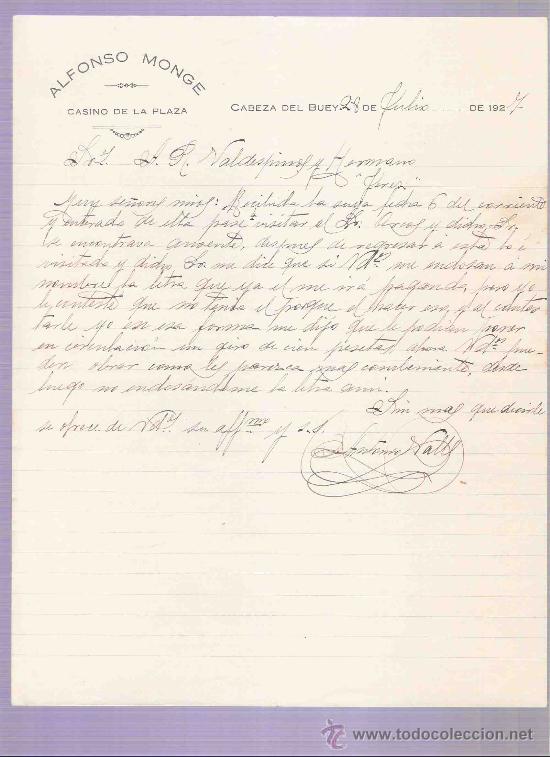 ALFONSO MONGE
CASINO DE LA PLAZA
CABEZA DEL BUEY 28 DE Julio DE 1927
Sres. A. R. Valdespino y Hermano
Jerez
Muy señores mios: Recibida la suya fecha 6 del corriente
y enterado de ella pasé visitar el Sr. Arcos y dicho Sr.
se encontrava ausente, despues de regresar a esta lo é
visitado y dicho Sr. me dice que si Vdes me endosan a mi
nombre la letra que ya el me irá pagando, pero yo
le conteste que no tenia el porque el hacer eso, y al contes
tarle yo en esa forma me dijo que le podian poner
en circulación un giro de cien pesetas, ahora Vdes pue-
den obrar como les parezca mas conveniente, desde
luego no endosandome la letra a mi.
Sin mas que decirle
se ofrece de Vdes su affmo y s.s.
Antonio Valls
www.todocoleccion.net